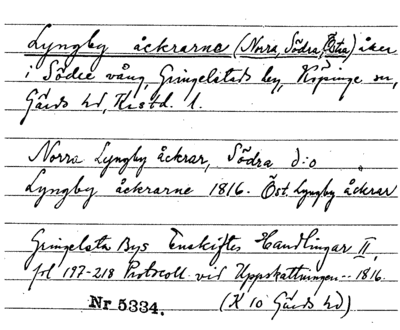 Lyngby åckrarne (Norra, Södra, Östra) åker
i Södre vång, Gringelstads by, Köpinge sn,
Gärds hd, Kistbd. 1.
Norra Lyngby åckrar, Södra d:o
Lyngby åckrarne 1816. Öst. Lyngby åckrar
Gringelsta Bys Enskiftes Handlingar II,
fol 197-218 Protocoll vid Uppskattningen -- 1816.
Nr 5334. (K 10 Gärds hd)